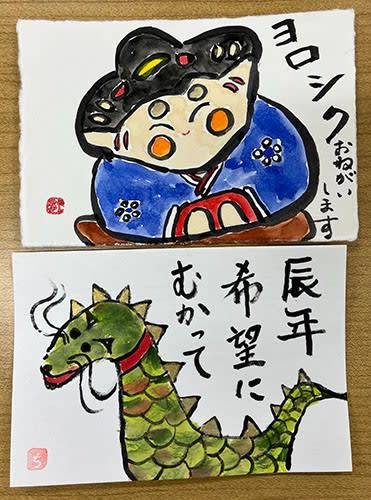 ヨロシク
おねがい
します
辰年
希望に
むかって
ち